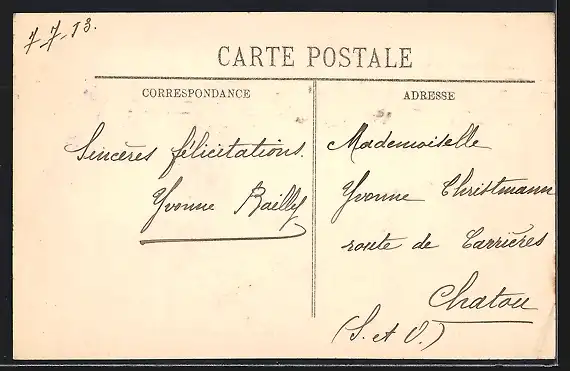 7-7-13.
CARTE POSTALE
CORRESPONDANCE
Sincères félicitations.
Yvonne Bailly
ADRESSE
Mademoiselle
Yvonne Christmann
route de Carrières
Chatou
(S. et O.)